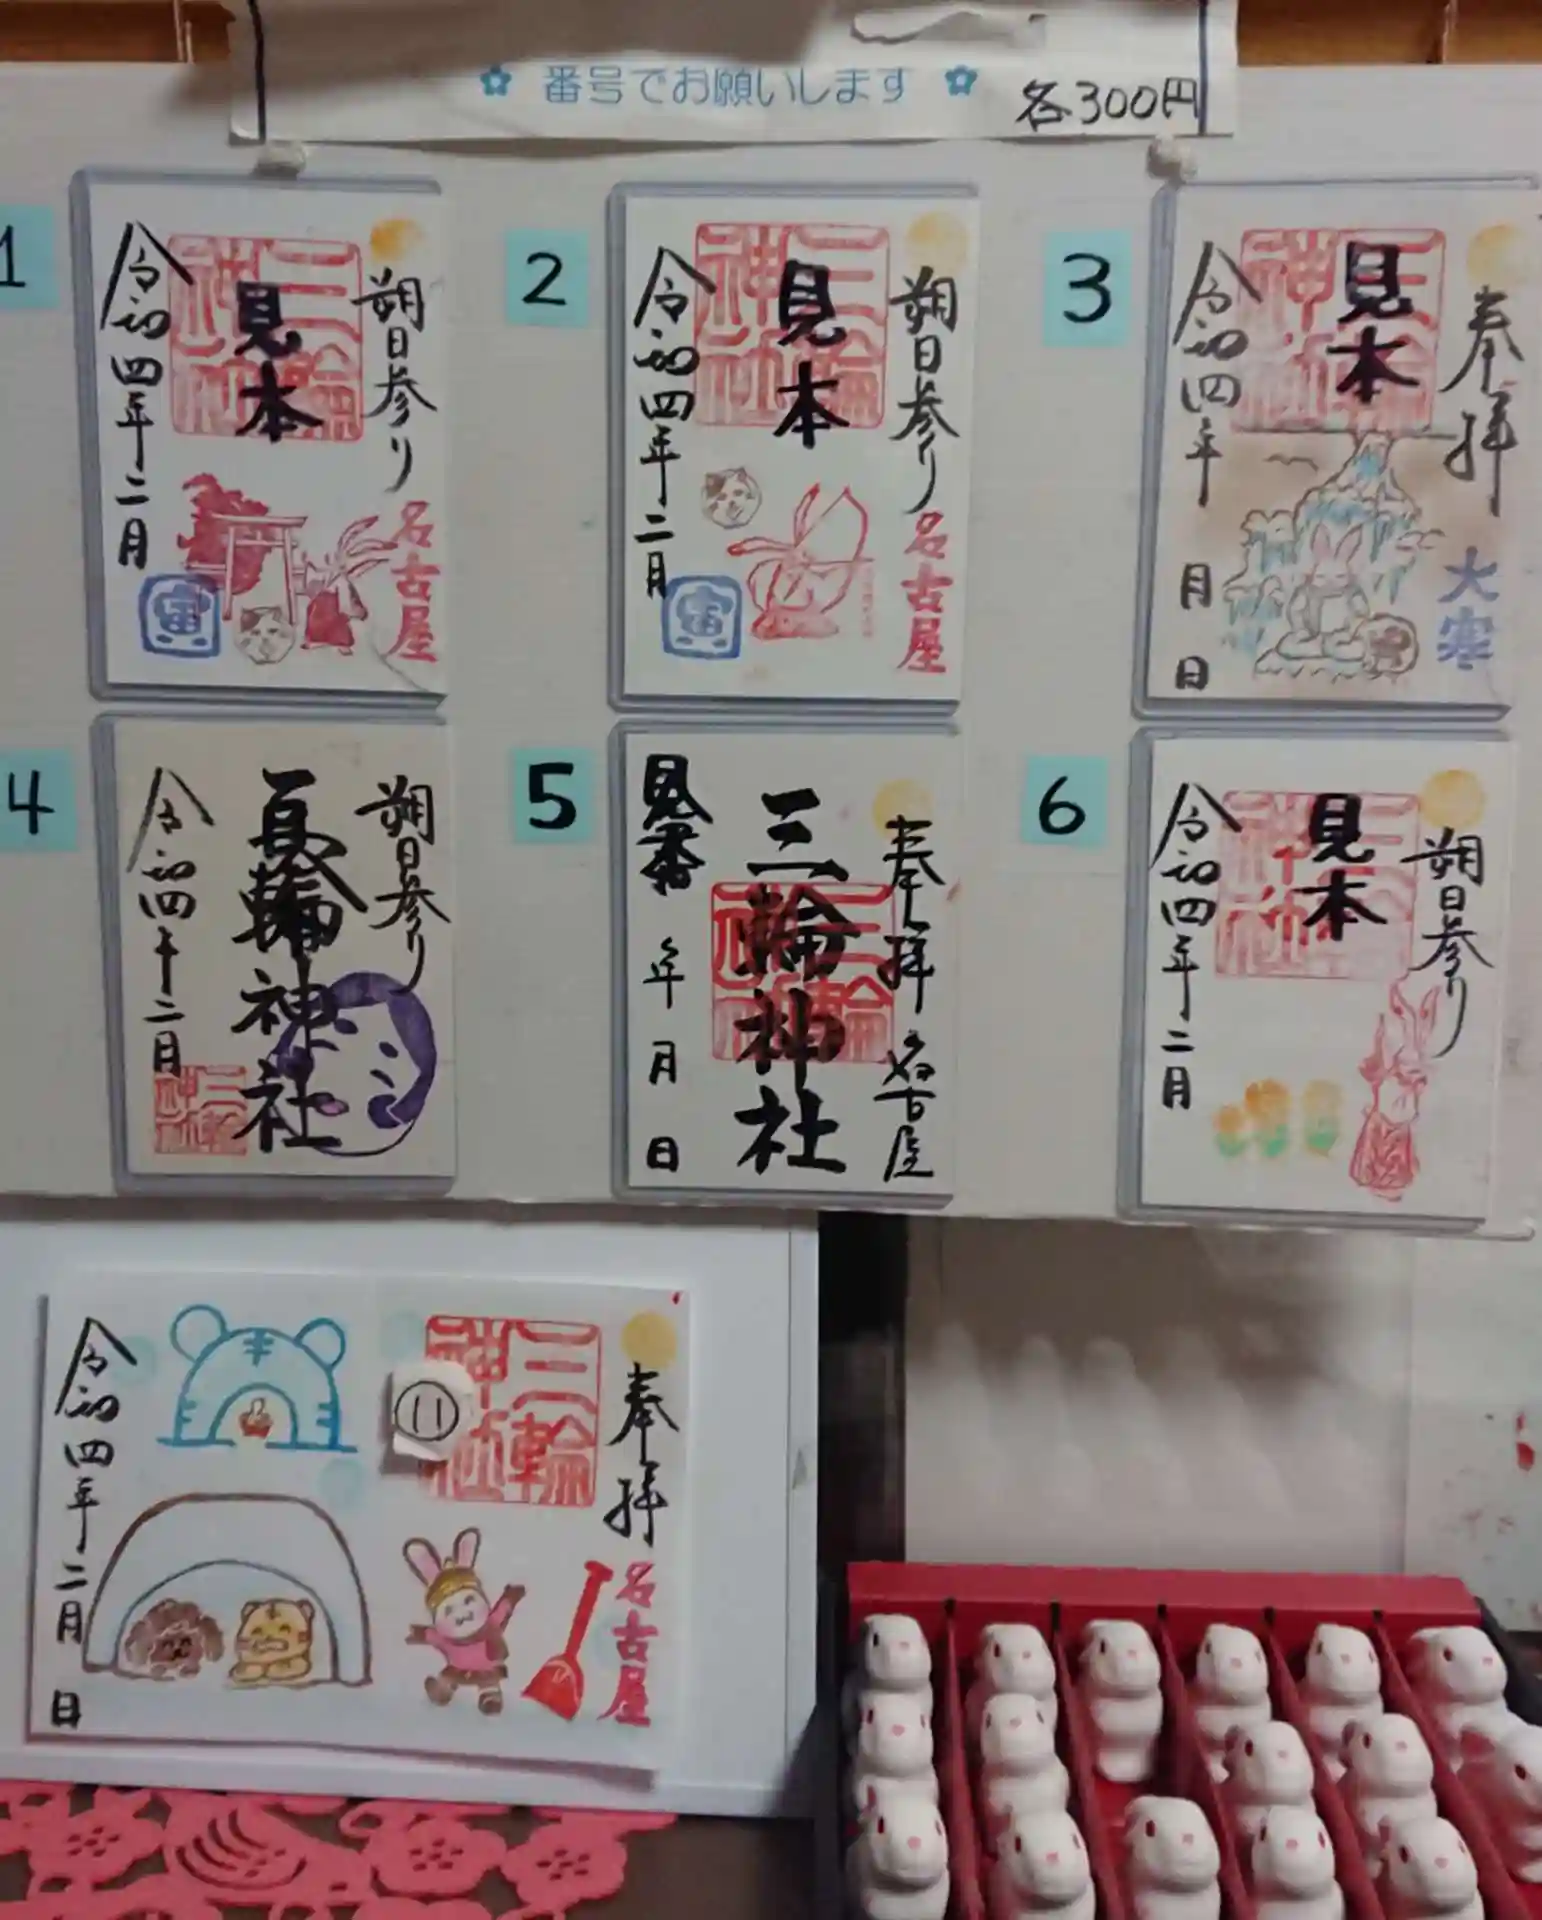 番号でお願いします 各300円
1
朔日参り
三輪神社
見本
令和四年二月
名古屋
寅
2
朔日参り
三輪神社
見本
令和四年二月
名古屋
寅
3
奉拝
三輪神社
見本
令和四年 月 日
大寒
4
朔日参り
三輪神社
令和四年二月
5
奉拝 名古屋
三輪神社
三輪神社
見本
年 月 日
6
朔日参り
三輪神社
見本
令和四年二月
奉拝
名古屋
三輪神社
11
令和四年二月 日